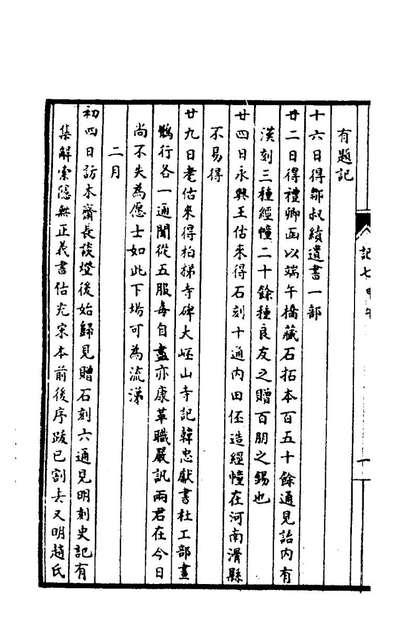 有題記
十六日得鄒叔績遺書一部
廿二日得禮卿函以端午橋藏石拓本百五十餘通見詒內有
漢刻三種經幢二十餘種良友之贈百朋之錫也
廿四日永興王估來得石刻十通內田伾造經幢在河南滑縣
不易得
廿九日老估來得柏梯寺碑大岯山寺記韓忠獻書杜工部畫
鶻行各一通聞從五服毒自盡亦康革職嚴訊兩君在今日
尚不失為愿士如此下場可為流涕
二月
初四日訪本齋長談燈後始歸見贈石刻六通見明刻史記有
集解索隱無正義書估充宋本前後序跋已割去又明趙氏
記七
一